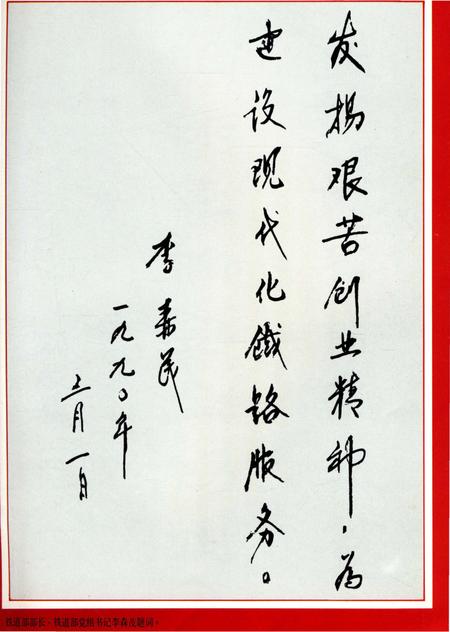 发扬艰苦创业精神，为
建设现代化鐵路服务。
李森茂
一九九〇年
三月一日
铁道部部长、铁道部党组书记李森茂题词：